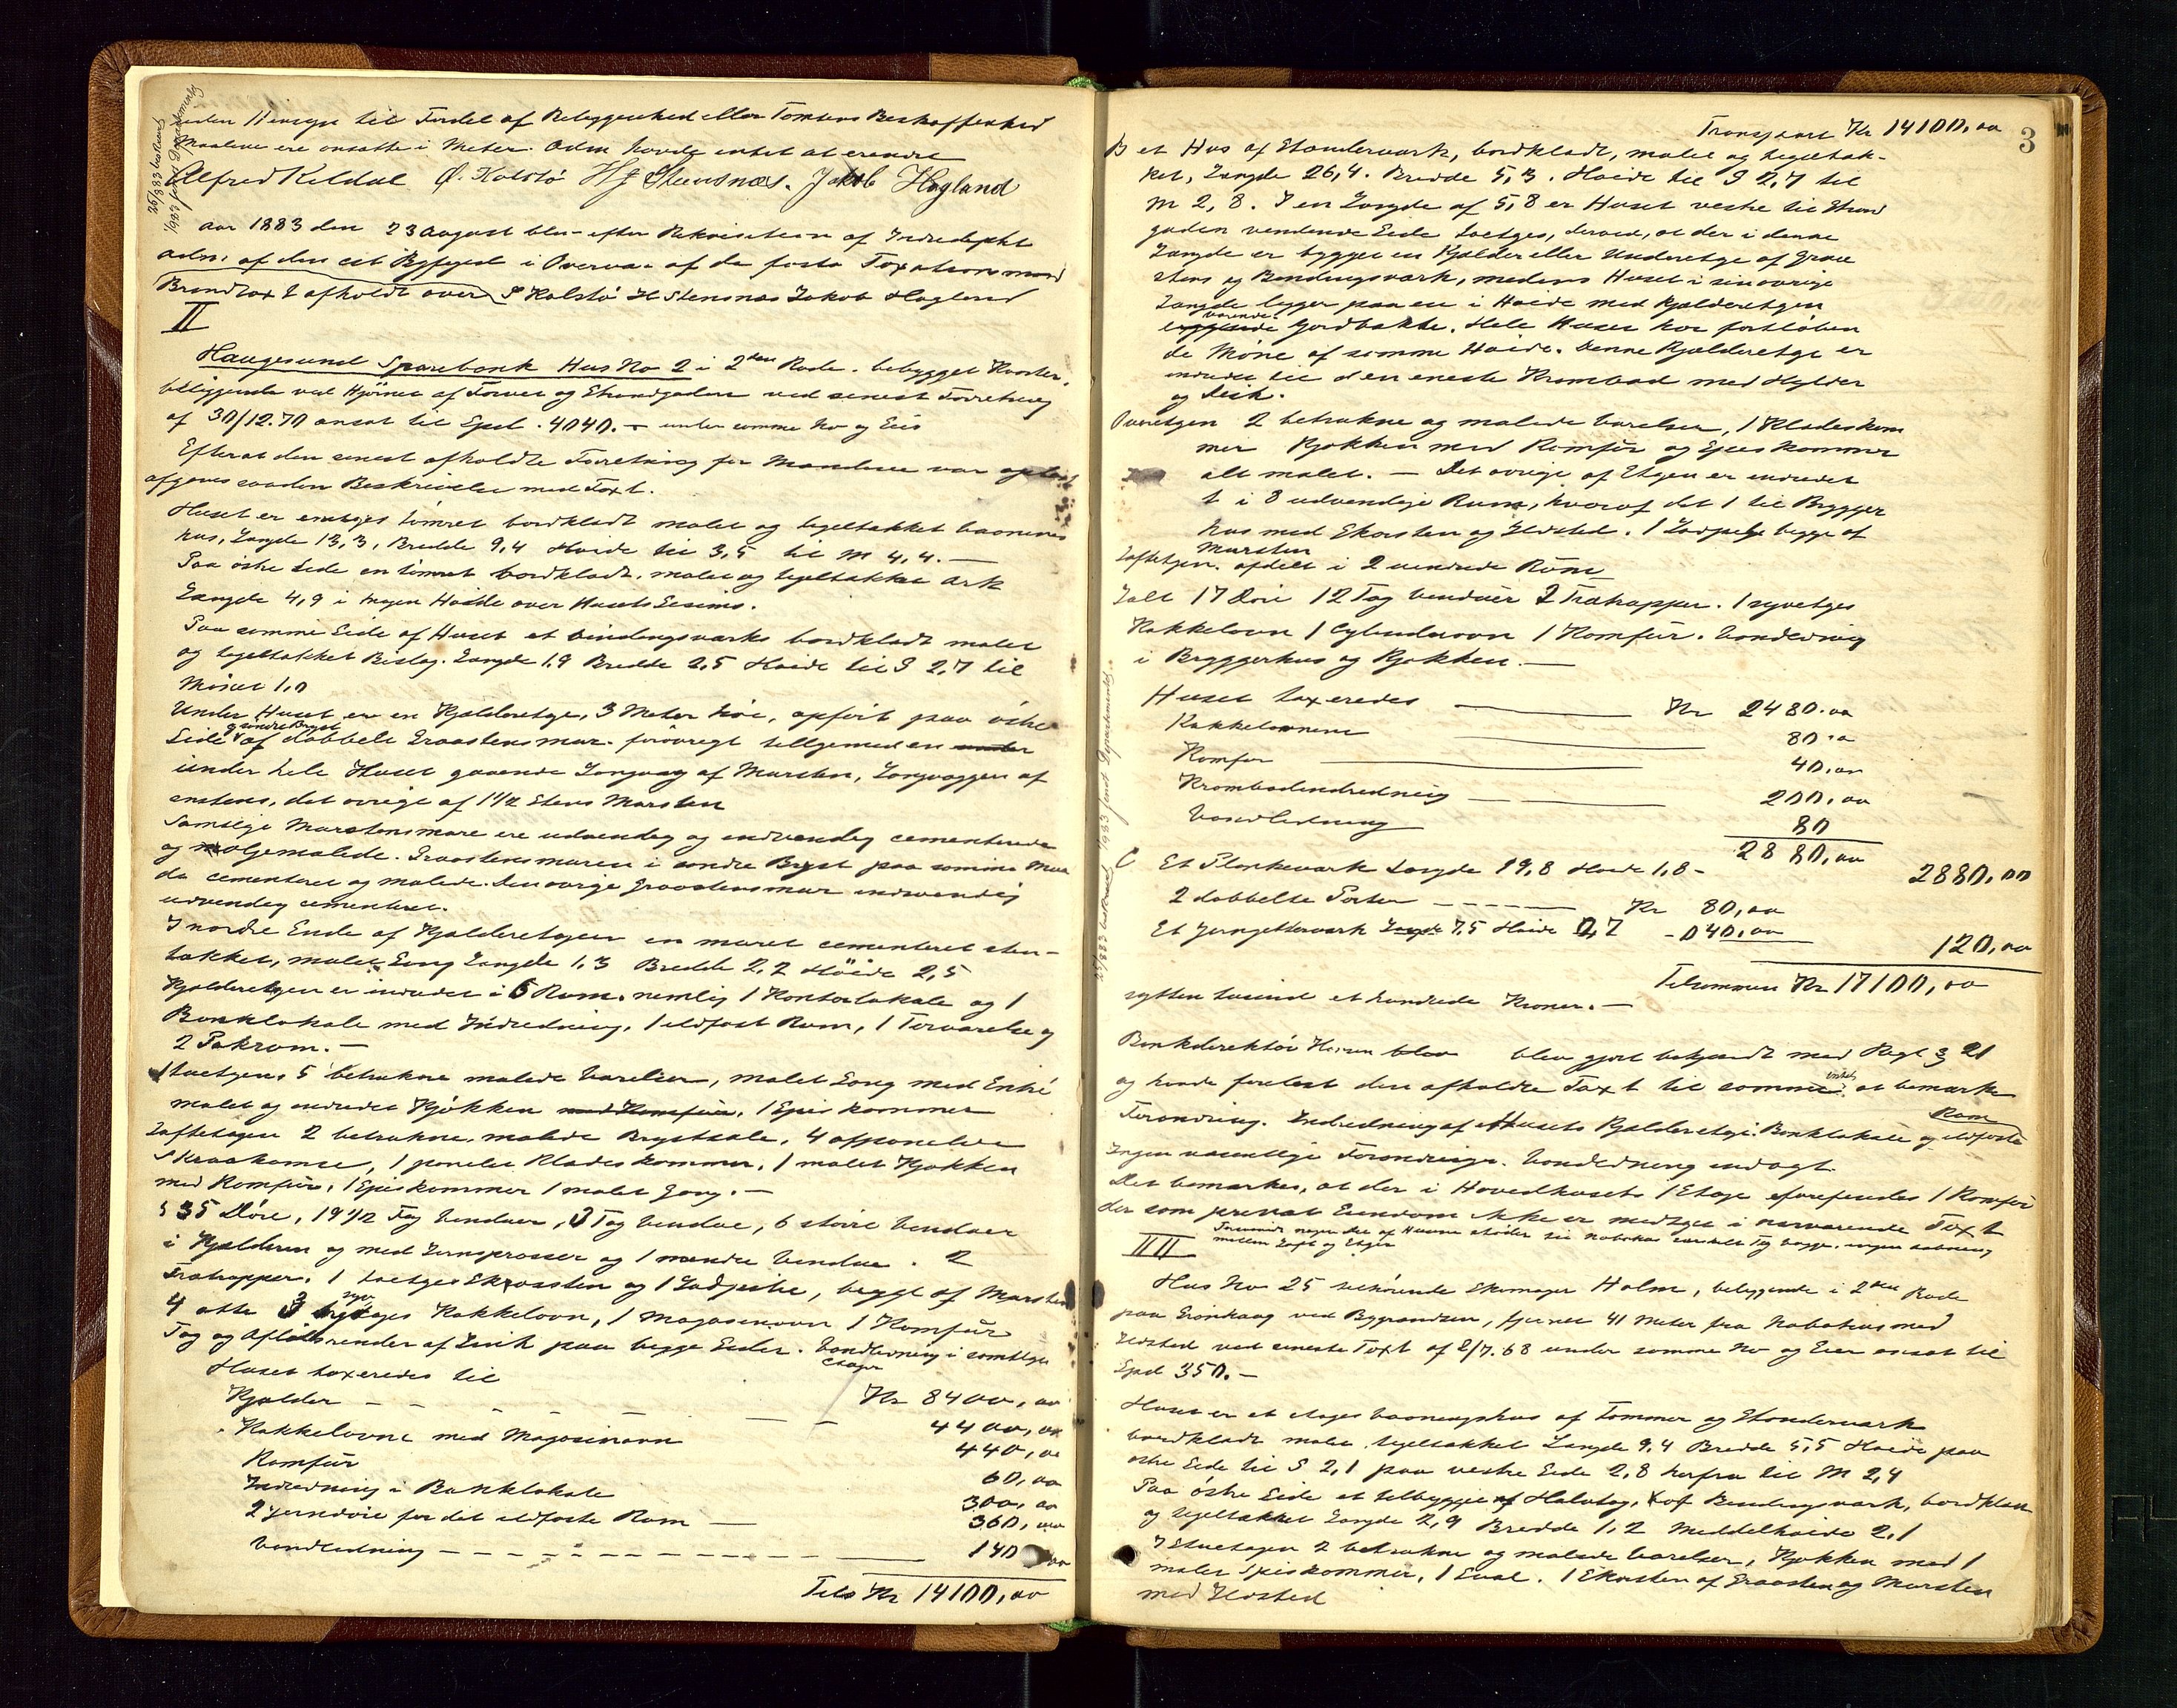 uden Hensyn til Fordel af Bebyggenhed eller Tomtens Beskaffenhed
Maalene ere ansatte i Meter.
Alfred Kildal Ø. Kolstø HJ Stensnæs. Jakob Hagland
Aar 1883 den 23 August blev efter Rekvisition af
adm. af den est Bygged i Overvær af de faste Taxationsmænd
Brandtaxt afholdt over Kolstø H Stensnæs Jakob Hagland
II
Haugesund Sparebank Hus No 2 i 2den Rode. bebygget Kvarter,
beliggende ved Hjørnet af Torvet og Strandgaden ved senest Forretning
af 30/12.70 ansat til Spd. 4040.- under samme No og Eier
Efterat den senest afholdte Forretning for Mændene var oplæst
afgaves saadan Beskrivelse med Taxt.
Huset er enetages tømret bordklædt malet og tegeltakket vaanings
hus, Længde 13,3, Bredde 9,4 Høide til 3,5 til M 4,4.-
Paa østre Side en tømret bordklædt, malet og tegeltakket Ark
Længde 4,9 i samme Høide over Husets Gesims.
Paa samme Side af Huset et bindingsverks bordklædt malet
og tegeltakket Bislag. Længde 1,9 Bredde 2,5 Høide til S 2,7 til
Mønet 1,0
Under Huset er en Kjelderetage, 3 Meter høi, opført paa østre
Side og søndre Bryst af dobbelt Graastensmur. forøvrigt tilligemed en
under hele Huset gaaende Langvæg af Mursten, Langvæggen af
enstens, det øvrige af 1½ Stens Mursten
Samtlige Murstensmure ere udvendig og indvendig cementerede
og oljemalede. Graastensmuren i søndre Bryst paa samme Maa
de cementeret og malede. Den øvrige Graastensmur indvendig
udvendig cementeret.
I nordre Ende af Kjelderetagen en muret cementeret sten-
takket, malet Gang Længde 1,3 Bredde 2,2 Høide 2,5
Kjelderetagen er indredet i 6 Rum. nemlig 1 Kontorlokale og 1
Banklokale med Indredning, 1 ildfast Rum, 1 Forværelse og
2 Pakrum.-
1 Stuetagen. 5 betrukne malede Værelser, malet Gang med Entré
malet og indredet Kjøkken med Komfür, 1 Spiskammer
Loftetagen 2 betrukne, malede Brystsale, 4 afpanelede
Skraakamre, 1 panelet Klædeskammer, 1 malet Kjøkken
med Komfür, 1 Spiskammer 1 malet Gang.-
35 Døre, 19½ Fag Vinduer, 3 Fag Vinduer, 6 større Vinduer
i Kjelderen og med Jernsprosser og 1 mindre Vindue. 2
Trætrapper. 1 toetages Skorsten og 1 Ladpibe, bygget af Mursten
4 otte 3 syvetages Kakkelovn, 1 Magasinovn 1 Komfür
Tag og Afløbsrender af Zink paa begge Sider. Vandledning i samtlige
Etager
Huset taxeredes til
Kjelder - - - - - Kr 8400,00
4400,00
Kakkelovne med Magasinovn 440,00
Komfür 60,00
Indredning i Banklokale 300,00
2 Jerndøre for det ildfaste Rum - 360,00
Vandledning - - - - - - 140,00
Tils Kr 14100,00
3
Transport Kr 14100,00
B et Hus af Standerværk, bordklædt, malet og tegeltak-
ket, Længde 26,4. Bredde 5,3. Høide til S 2,7 til
M 2,8. I en Længde af 5,8 er Huset vestre til Strand
gaden vendende Side toetages, derved, at der i denne
Længde er bygget en Kjelder eller Underetage af Graa
stens og Bindingsværk, medens Huset i sin øvrige
Længde ligger paa en i Høide med Kjelderetagen
værende Gaardbakke. Hele Huset har fortløben
de Møne af samme Høide. Denne Kjelderetage er
indredet til den eneste Krambod med Hylder
og Disk.
Overetgen 2 betrukne og malede Værelser, 1 Klædeskam
mer Kjøkken med Komfür og Spiskammer
alt malet.- Det øvrige af Etagen er indredet
i 3 udvendige Rum, hvoraf det 1 til Brygger
hus med Skorsten og Ildsted. 1 Ladpibe begge af
Mursten
Loftetgen. afdelt i 2 uindrede Rum
Ialt 17 Døre 12 Fag Vinduer 2 Trætrapper. 1 syvetges
Kakkelovn 1 Cylinderovn 1 Komfür. Vandledning
i Bryggerhus og Kjøkken.-
Huset taxeredes Kr 2480.00
Kakkelovnene 80.00
Komfur 40,00
Krambodindredning 200,00
Vandledning 80
2880,00
C Et Plankeværk Længde 19,8 Høide 1,8- 2880,00
2 dobbelte Porter - - - - - Kr 80,00
Et Jerngitterværk Længde 7,5 Høide 0,7 - 040,00
120,00
Tilsammen Kr 17100,00
sytten tusind et hundrede Kroner.-
Bankdirektør blev gjort bekjendt med Regl § 21
og havde forelæst den afholdte Taxt til samme intet at bemærke
Forandring. Indredning af Husets Kjelderetage. Banklokale og ildfaste Rum
Ingen væsentlige Forandringer. Vandledning indlagt.
Det bemærkes, at der i Hovedhusets 1 Etage forefindes 1 Komfür
der som privat Eiendom ikke er medtaget i nærværende Taxt
mellem Loft og Etager
III
Hus No 25 tilhørende Skomager Holm, beliggende i 2den Rode
paa Grønhaug ved Bygrændsen, fjernet 41 Meter fra Nabohus med
Ildsted ved seneste Taxt af 2/7.68 under samme No og Eier ansat til
Spd 350.-
Huset er et etages vaaningshus af Tømmer og Standerværk
bordklædt malet tegeltakket Længde 9,4 Bredde 5,5 Høide paa
østre Side til S 2,1 paa vestre Side 2,8 herfra til M 2,4
Paa østre Side et tilbygget Halvtag, af Bindingsværk, bordklædt
og tegeltakket Længde 2,9 Bredde 1,2 Middelhøide 2,1
I Stuetagen 2 betrukne og malede Værelser, Kjøkken med 1
malet Spiskammer, 1 Sval. 1 Skorsten af Graasten og Mursten
med Ildsted